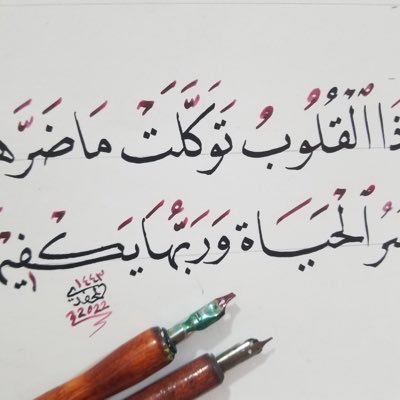 ذَا الْقُلُوبُ تَوَكَّلَتْ مَا ضَرَّهـ
ـرُ الْحَيَاة وَرَبُّهَا يَكْفِيهـ
١٤٤٣
2022